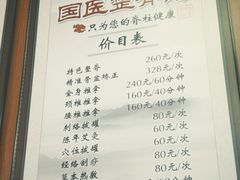 国医整脊
只为您的脊柱健康
价目表
特色整脊 260元/次
精准骨盆矫正 328元/次
全身推拿 240元/60分钟
颈椎推拿 160元/40分钟
腰椎推拿 160元/40分钟
刺络拔罐 80元/次
陈年艾灸 60元/次
穴位拔罐 60元/次
经络刮痧 80元/次
草本热敷